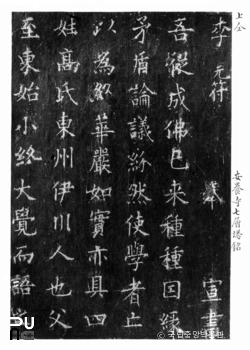 上仝
安養寺七層塔銘
李 元符 奉 宣書
吾從成佛已来種種因緣
矛盾論議紛然使學者止
以為 華嚴如實亦具四
姓髙氏東州伊川人也父
至東始小終大覺而
© 국립중앙박물관